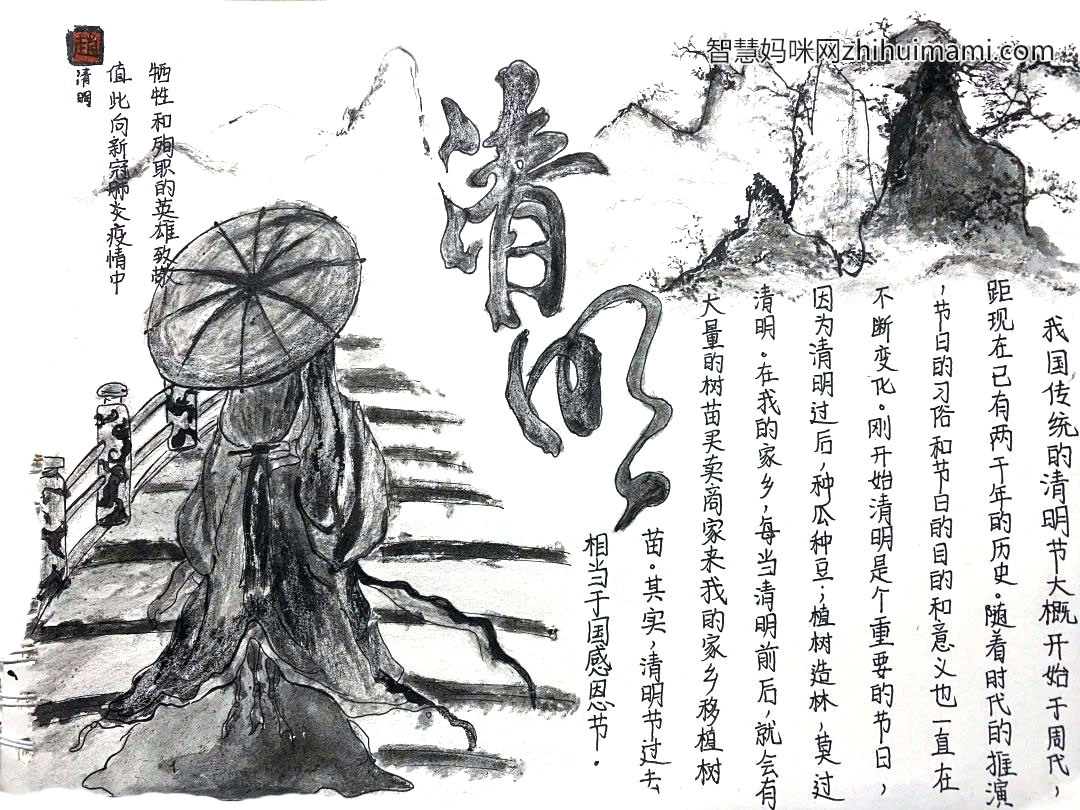 智慧妈咪网zhihuimami.com
清明
我国传统的清明节大概开始于周代，
距现在已有两千年的历史。随着时代的推演
，节日的习俗和节日的目的和意义也一直在
不断变化。刚开始清明是个重要的节日，
因为清明过后，种瓜种豆；植树造林，莫过
清明。在我的家乡，每当清明前后，就会有
大量的树苗买卖商家来我的家乡移植树
苗。其实，清明节过去
相当于国感恩节.
值此向新冠肺炎疫情中
牺牲和殉职的英雄致敬
清明
赵